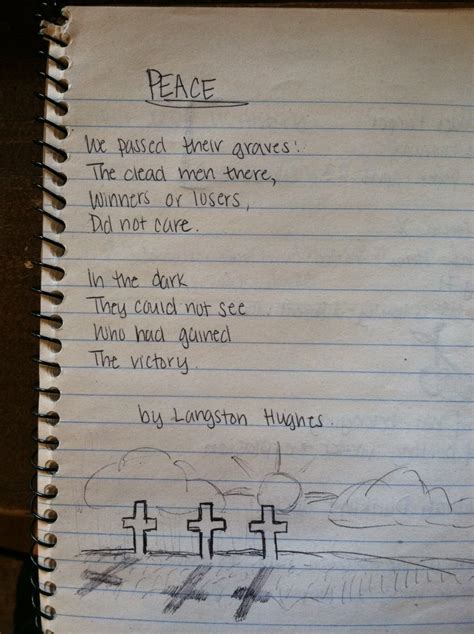 PEACE
We passed their graves:
The dead men there,
Winners or losers,
Did not care.
In the dark
They could not see
Who had gained
The victory.
by Langston Hughes.